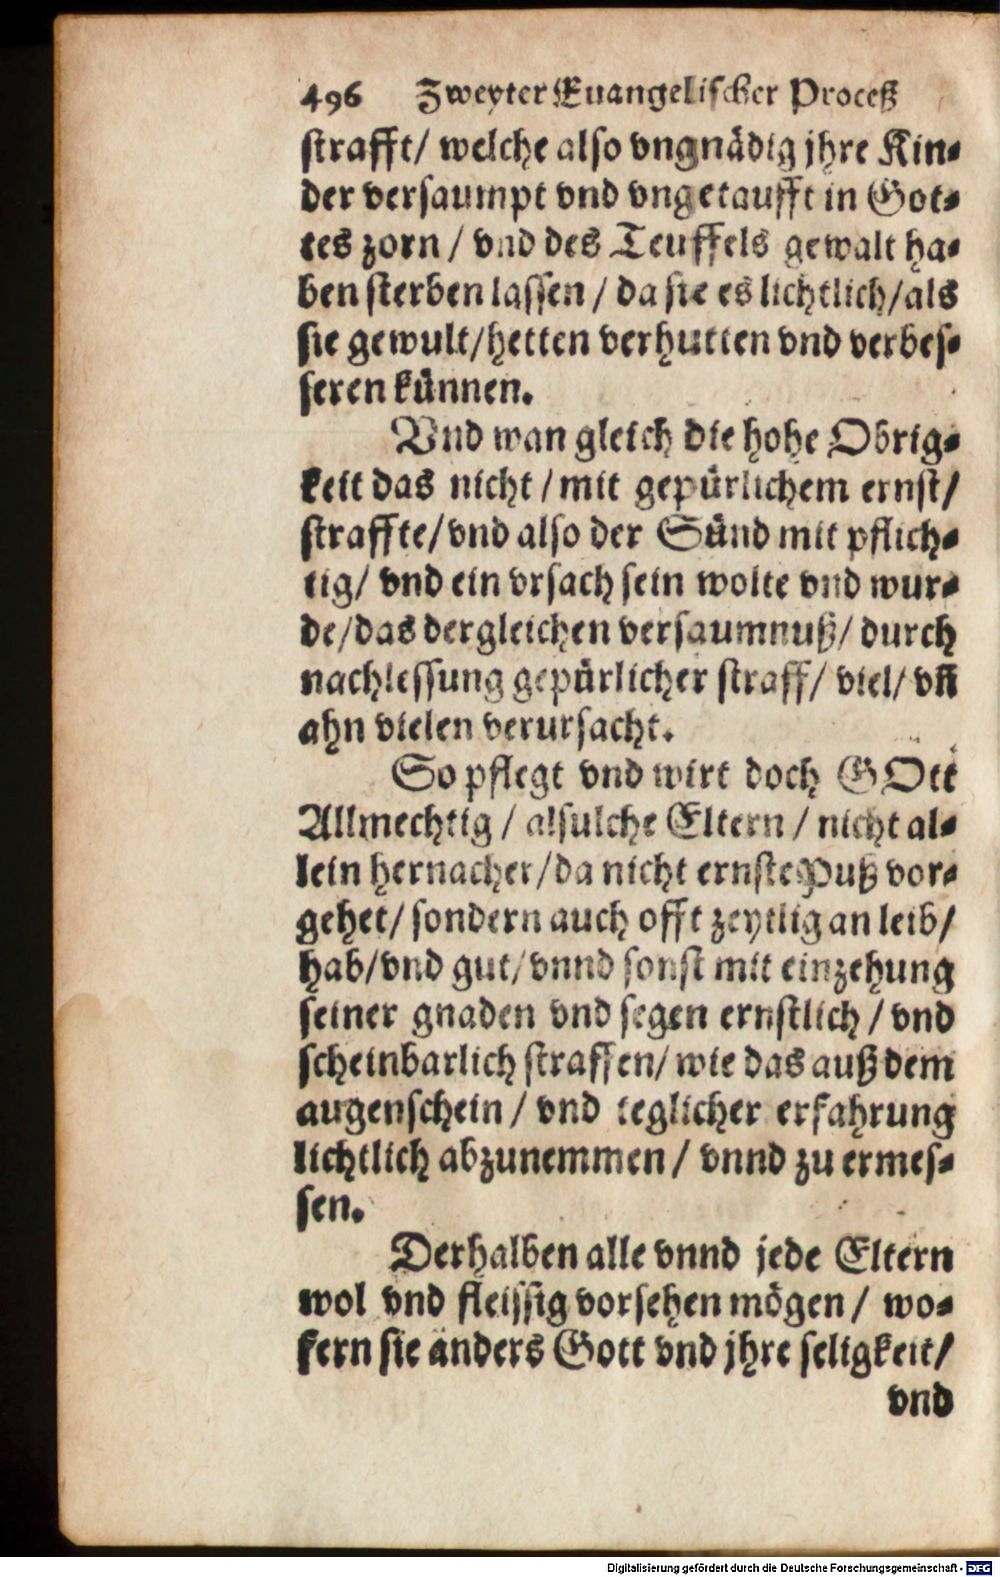 496 Zweyter Euangelischer Proceß
strafft/ welche also vngnädig jhre Kin-
der versaumpt vnd vngetaufft in Got-
tes zorn / vnd des Teuffels gewalt ha-
ben sterben lassen / da sie es lichtlich/als
sie gewult/hetten verhutten vnd verbes-
seren künnen.
Vnd wan gleich die hohe Obrig-
keit das nicht / mit gepürlichem ernst/
straffte/vnd also der Sünd mit pflich-
tig/ vnd ein vrsach sein wolte vnd wur-
de/das dergleichen versaumnuß/ durch
nachlessung gepürlicher straff/ viel/ vñ
ahn vielen verursacht.
So pflegt vnd wirt doch GOtt
Allmechtig / alsulche Eltern / nicht al-
lein hernacher/da nicht ernste Puß vor-
gehet/ sondern auch offt zeytlig an leib/
hab/vnd gut/vnnd sonst mit einzehung
seiner gnaden vnd segen ernstlich / vnd
scheinbarlich straffen/ wie das auß dem
augenschein / vnd teglicher erfahrung
lichtlich abzunemmen / vnnd zu ermes-
sen.
Derhalben alle vnnd jede Eltern
wol vnd fleissig vorsehen mögen / wo-
fern sie anders Gott vnd jhre seligkeit/
vnd
Digitalisierung gefördert durch die Deutsche Forschungsgemeinschaft - DFG